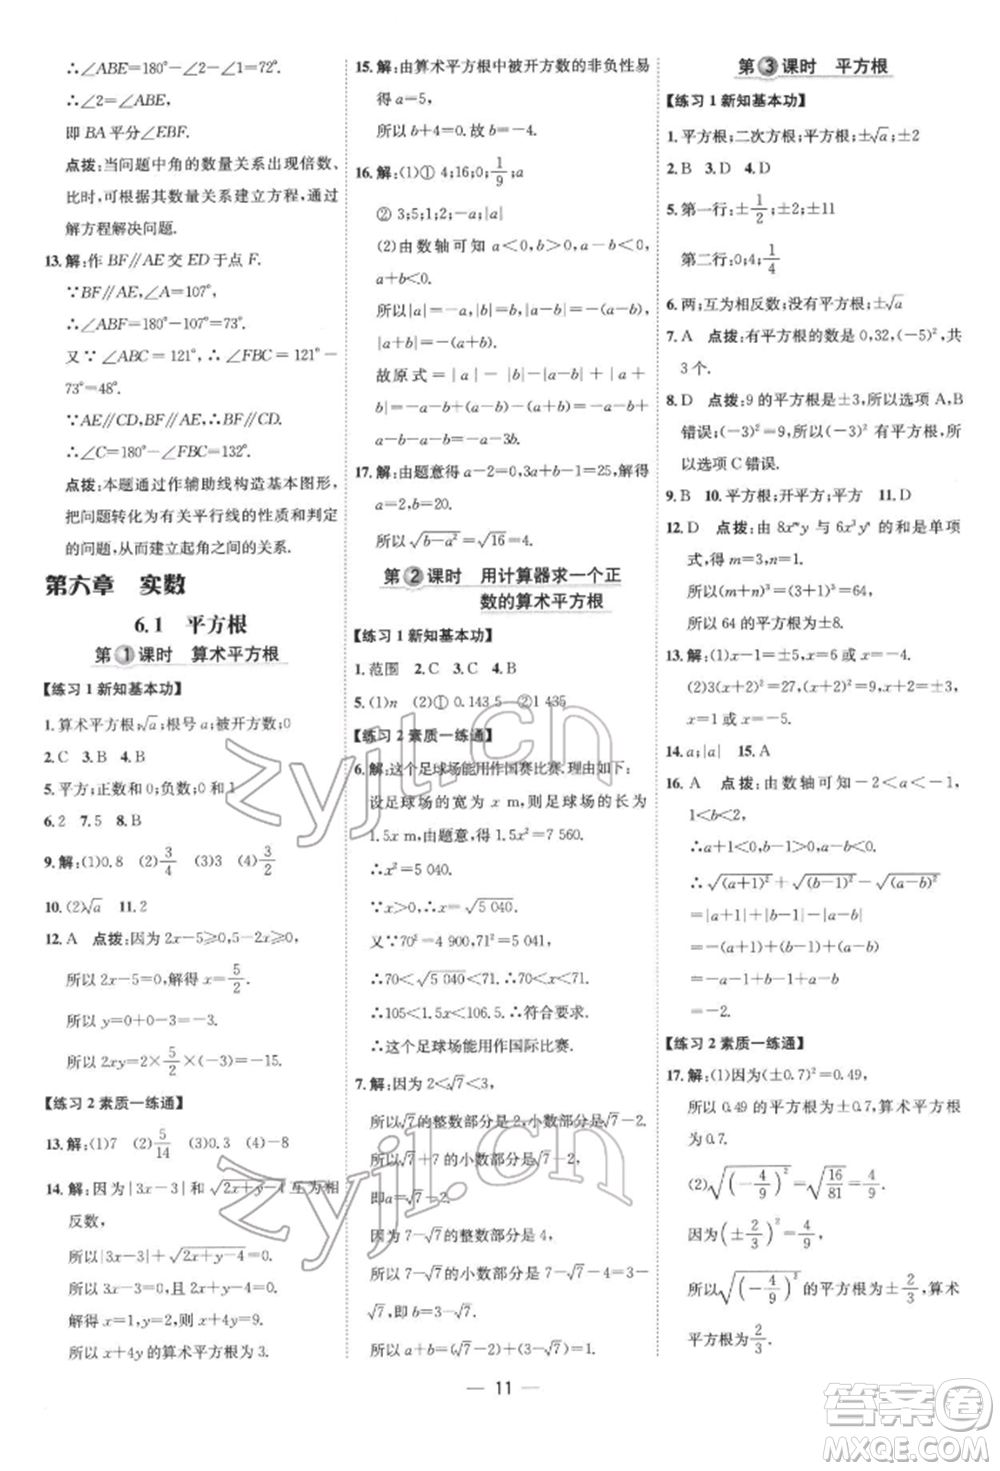 ∴∠ABE=180°-∠2-∠1=72°.
∴∠2=∠ABE,
即 BA 平分∠EBF.
点拨:当问题中角的数量关系出现倍数、
比时,可根据其数量关系建立方程,利用
解方程解决问题.
13.解:作 BF∥AE 交 ED 于点 F.
∵BF∥AE,∠A=107°,
∴∠ABF=180°-107°=73°.
又∵∠ABC=121°,∴∠FBC=121°-
73°=48°.
∵AE∥CD,BF∥AE,∴BF∥CD.
∴∠C=180°-∠FBC=132°.
点拨:本题通过作辅助线构造基本图形,
把问题转化为有关平行线的性质和判定
的问题,从而建立起角之间的关系.
第六章 实数
6.1 平方根
第1课时 算术平方根
【练习 1 新知基本功】
1.算术平方根;√a;根号 a;被开方数;0
2.C 3.B 4.B
5.平方;正数和 0;负数;0 和 1
6.2 7.5 8.B
9.解:(1)0.8 (2)3/4 (3)3 (4)3/2
10.(2)√a 11.2
12.A 点拨:因为 2x-5≥0,5-2x≥0,
所以 2x-5=0,解得 x=5/2.
所以 y=0+0-3=-3.
所以 2xy=2×5/2×(-3)=-15.
【练习 2 素质一练通】
13.解:(1)7 (2)5/14 (3)0.3 (4)-8
14.解:因为|3x-3|和√(2x+y-4)互为相
反数,
所以|3x-3|+√(2x+y-4)=0.
所以 3x-3=0,且 2x+y-4=0.
解得 x=1,y=2.所以 x+4y=9.
所以 x+4y 的算术平方根为 3.
15.解:由算术平方根中被开方数的非负性易
得 a=5,
所以 b+4=0.故 b=-4.
16.解:(1)① 4;16;0;1/9;a
② 3;5;1;2;-a;|a|
(2)由数轴可知 a<0,b>0,a-b<0,
a+c<0.
所以|a|-|b|=|a-b|+|a+
b|.
故原式=|a|-|b|+|a-b|+|a+b|
=-a-b-a+b-a-b
=-a-b+b-a-b=-a-3b.
17.解:由题意得 a-2=0,3a+b-1=25,解得
a=2,b=20.
所以√(b-a²)=√16=4.
第2课时 用计算器求一个正
数的算术平方根
【练习 1 新知基本功】
1.范围 2.C 3.C 4.B
5.(1)n (2)① 0.143 5 ②1 435
【练习 2 素质一练通】
6.解:这个足球场能用作国赛比赛.理由如下:
设足球场的宽为 x m,则足球场的长为
1.5x m,由题意,得 1.5x²=7 560.
∴x²=5 040.
∵x>0,∴x=√5 040.
又∵70²=4 900,71²=5 041,
∴70<√5 040<71.∴70<x<71.
∴105<1.5x<106.5.∴符合要求.
∴这个足球场能用作国际比赛.
7.解:因为 2<√7<3,
所以√7的整数部分是 2,小数部分是√7-2.
所以√7的小数部分是√7-2.
即a=√7-2.
因为 7-√7的整数部分是 4,
所以 7-√7的小数部分是 7-√7-4=3-
√7,即 b=3-√7.
所以 a+b=(√7-2)+(3-√7)=1.
第3课时 平方根
【练习 1 新知基本功】
1.平方根;二次方根;平方根;±√a;±2
2.B 3.D 4.D
5.第一行:±1/2;±2;±11
第二行:0;4;1/4
6.两;互为相反数;没有平方根;±√a
7.A 点拨:有平方根的数是 0,32,(-5)²,共
3 个.
8.D 点拨:9 的平方根是±3,所以选项 A,B
错误;(-3)²=9,所以(-3)²有平方根,
所以选项 C 错误.
9.B 10.平方根;开平方;平方 11.D
12.D 点拨:由 8xᵐy 与 6x³yⁿ 的和是单项
式,得 m=3,n=1.
所以(m+n)³=(3+1)³=64.
所以 64 的平方根为±8.
13.解:(1)x-1=±5,x=6 或 x=-4.
(2)3(x+2)²=27,(x+2)²=9,x+2=±3,
x=1 或 x=-5.
14.a;|a| 15.A
16.A 点拨:由数轴可知-2<a<-1,
1<b<2,
∴a+1<0,b-1>0,a-b<0.
∴√(a+1)²+√(b-1)²-√(a-b)²
=|a+1|+|b-1|-|a-b|
=-(a+1)+(b-1)+(a-b)
=-a-1+b-1+a-b
=-2.
【练习 2 素质一练通】
17.解:(1)因为(±0.7)²=0.49,
所以 0.49 的平方根为±0.7,算术平方根
为 0.7.
(2)√(-4/9)²=√16/81=4/9.
因为(±2/3)²=4/9,
所以√(-4/9)²的平方根为±2/3,算术
平方根为2/3.
— 11 —
zyjl.cn
zyjl.cn
答案圈
MXQE.COM